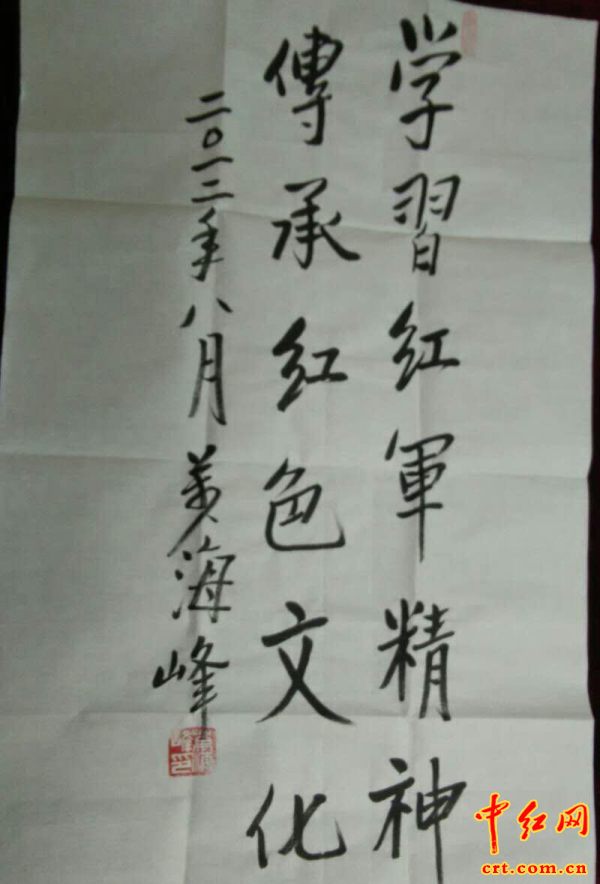 学習红軍精神
傳承红色文化
二〇一二年八月 萬海峰
中红网
crt.com.cn